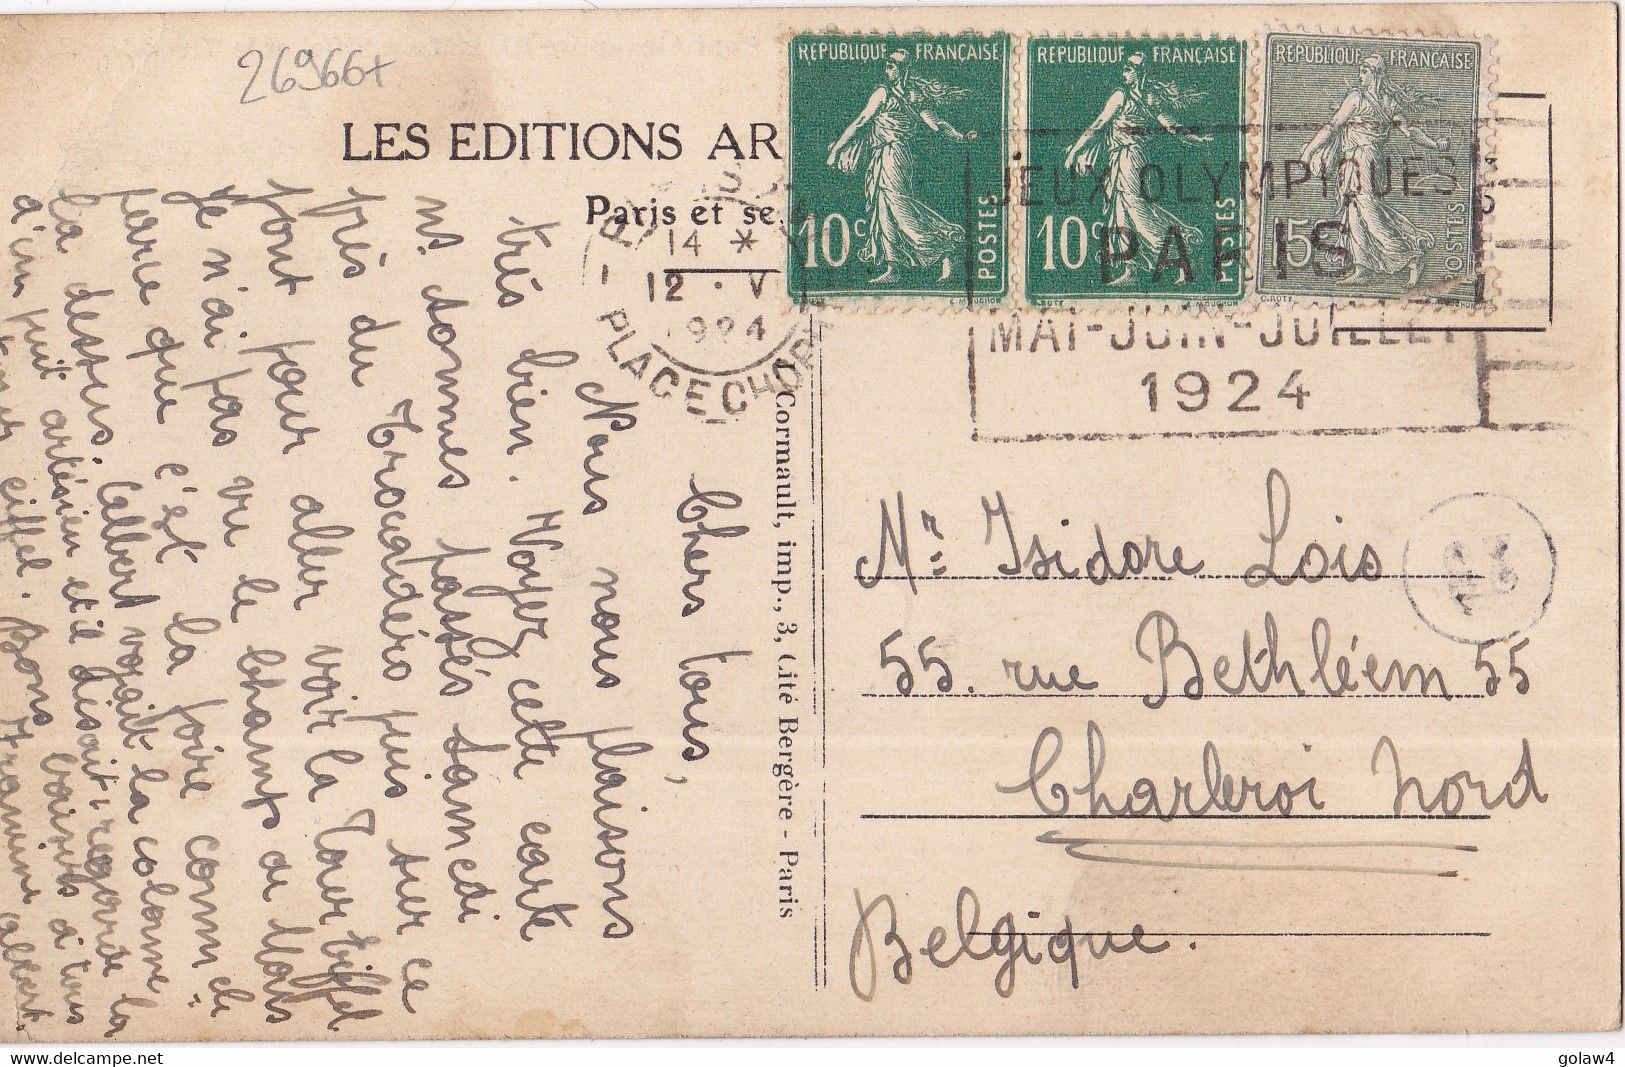 26966+
LES EDITIONS AR
Paris et se
RÉPUBLIQUE FRANÇAISE
10c
POSTES
RÉPUBLIQUE FRANÇAISE
10c
POSTES
RÉPUBLIQUE FRANÇAISE
15
POSTES
14 *
12 · V
1924
PLACE CHOPIN
JEUX OLYMPIQUES
PARIS
MAI-JUIN-JUILLET
1924
Cormault, imp., 3, Cité Bergère - Paris
Chers tous,
Nous nous plaisons
très bien. Voyez cette carte
ns. sommes passés samedi
près du Trocadéro puis sur ce
pont pour aller voir la Tour Eiffel
je n'ai pas vu le Champ de Mars
parce que c'est la foire comm de
la dessus. Albert voyait la colonne
d'un puit artésien et il disait: regarde la
Tour eiffel. Bons baisers à tous
albert.
Mr: Isidore Lois
55. rue Bethléem 55
Charleroi Nord
Belgique.
golaw4